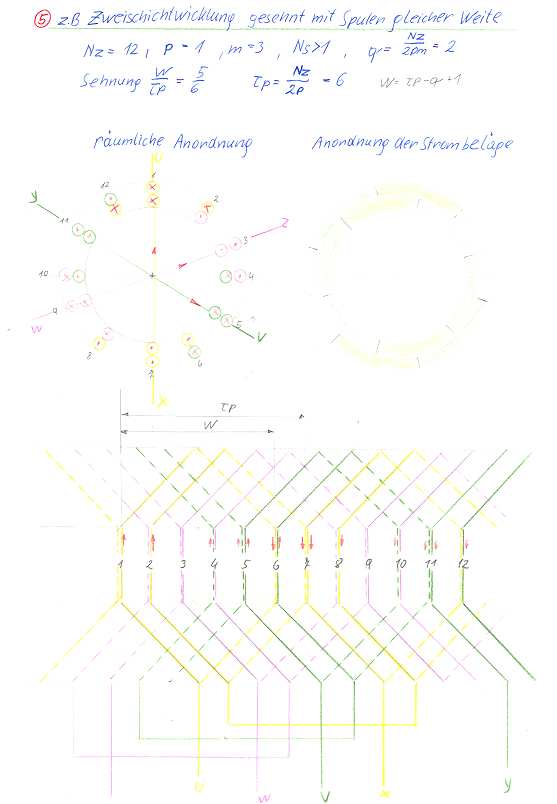 ⑤ z.B Zweischichtwicklung gesehnt mit Spulen gleicher Weite
Nz = 12, p = 1, m = 3, Ns > 1, q = Nz/2pm = 2
Sehnung W/τp = 5/6 τp = Nz/2p = 6 W = τp - q + 1
räumliche Anordnung Anordnung der Strombeläge
U
1
12
2
y
11
Z
3
10
4
9
5
W
V
8
6
7
X
τp
W
1 2 3 4 5 6 7 8 9 10 11 12
U W V X y